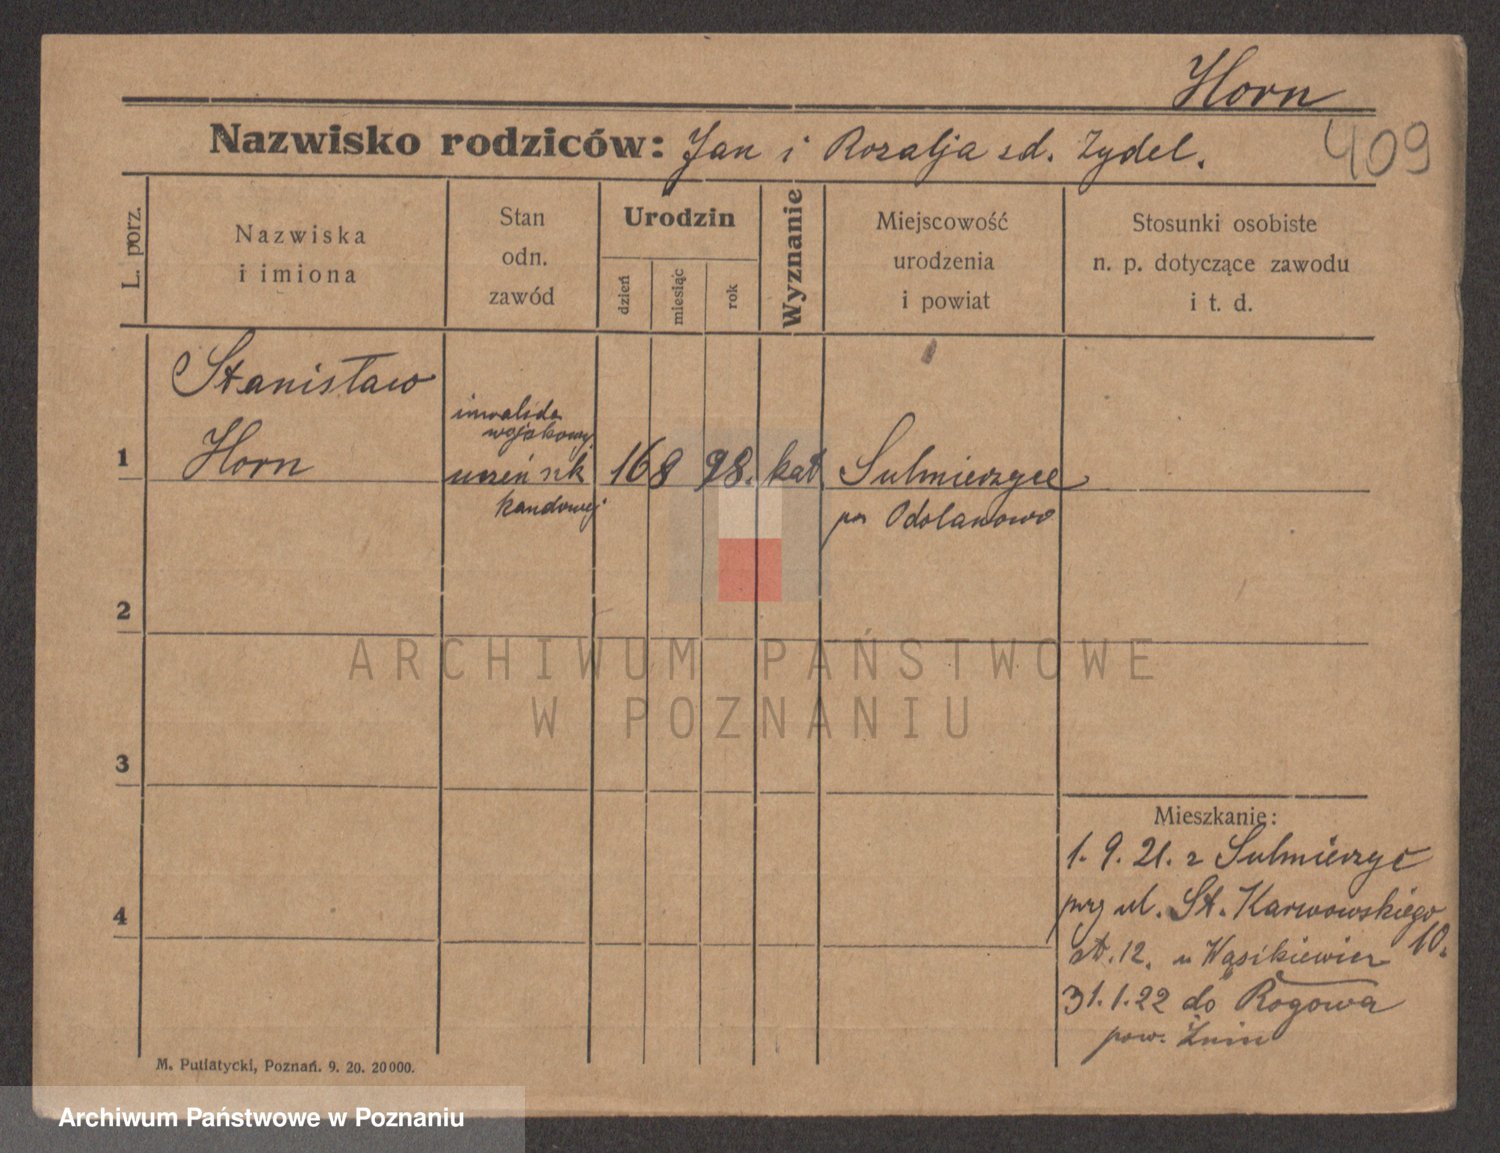 Horn
Nazwisko rodziców: Jan i Rozalja zd. Zydel.
409
L. porz.
Nazwiska
i imiona
Stan
odn.
zawód
Urodzin
dzień
miesiąc
rok
Wyznanie
Miejscowość
urodzenia
i powiat
Stosunki osobiste
n. p. dotyczące zawodu
i t. d.
Stanisław
inwalida
wojskowy
1 Horn uczeń szk 16 8 98. kat Sulmierzyce
handowej
pow Odolanowo
2
3
4
Mieszkanie:
1. 9. 21. z Sulmierzyc
przy ul. St. Karwowskiego
10.
pt. 12. u Wąsikiewicz
31. 1. 22 do Rogowa
pow. Żnin
M. Putiatycki, Poznań. 9. 20. 20000.
ARCHIWUM PAŃSTWOWE
W POZNANIU
Archiwum Państwowe w Poznaniu